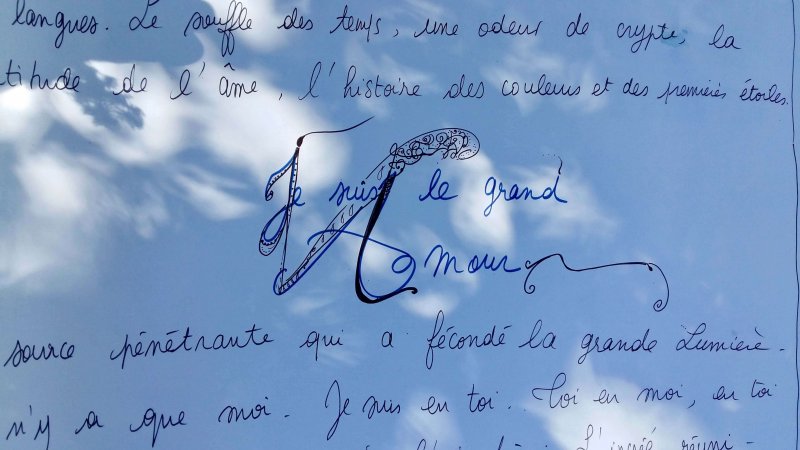 langues. Le souffle des temps, une odeur de crypte, la
titude de l'âme, l'histoire des couleurs et des premières étoiles.
Je suis le grand
Amour
source pénétrante qui a fécondé la grande Lumière.
n'y a que moi. Je suis en toi. Toi en moi, en toi
L'incréé réuni